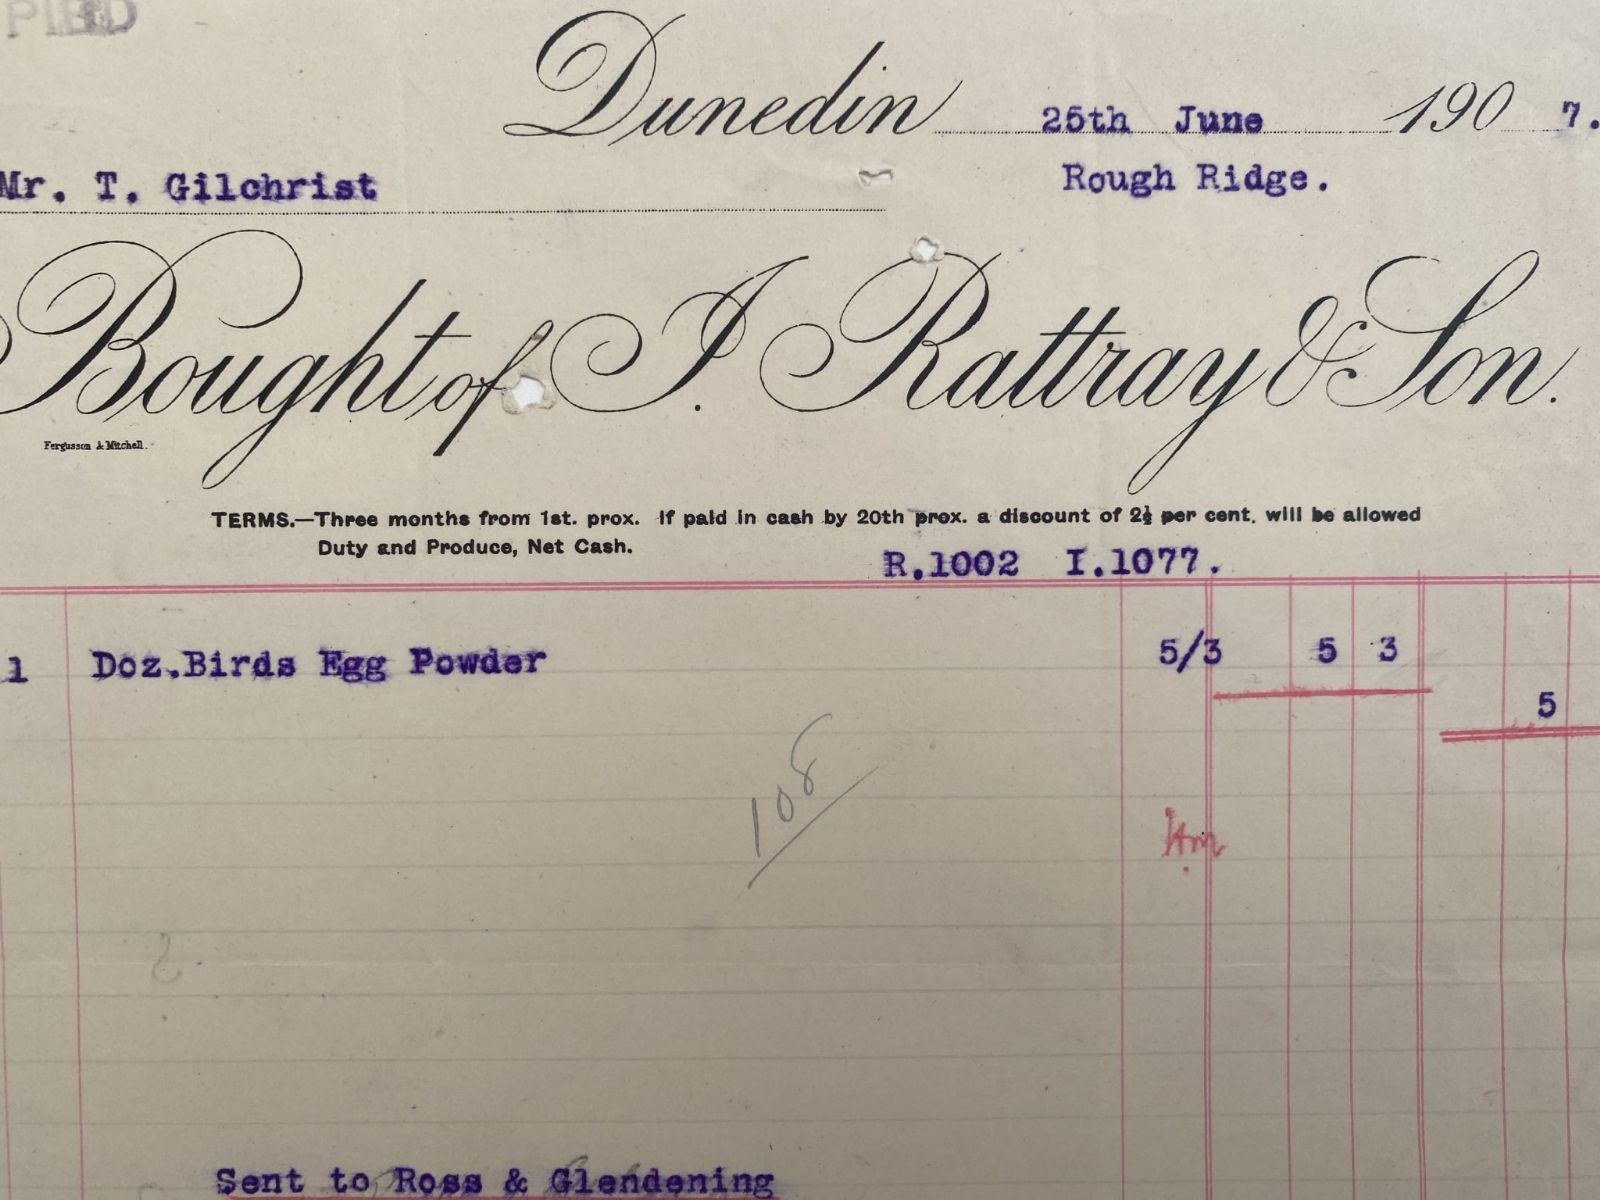 Dunedin 25th June 1907.
Mr. T. Gilchrist Rough Ridge.
Bought of J. Rattray & Son.
Fergusson & Mitchell.
TERMS.—Three months from 1st. prox. If paid in cash by 20th prox. a discount of 2½ per cent. will be allowed
Duty and Produce, Net Cash.
R.1002 I.1077.
1 Doz.Birds Egg Powder 5/3 5 3
5
108
Sent to Ross & Glendening